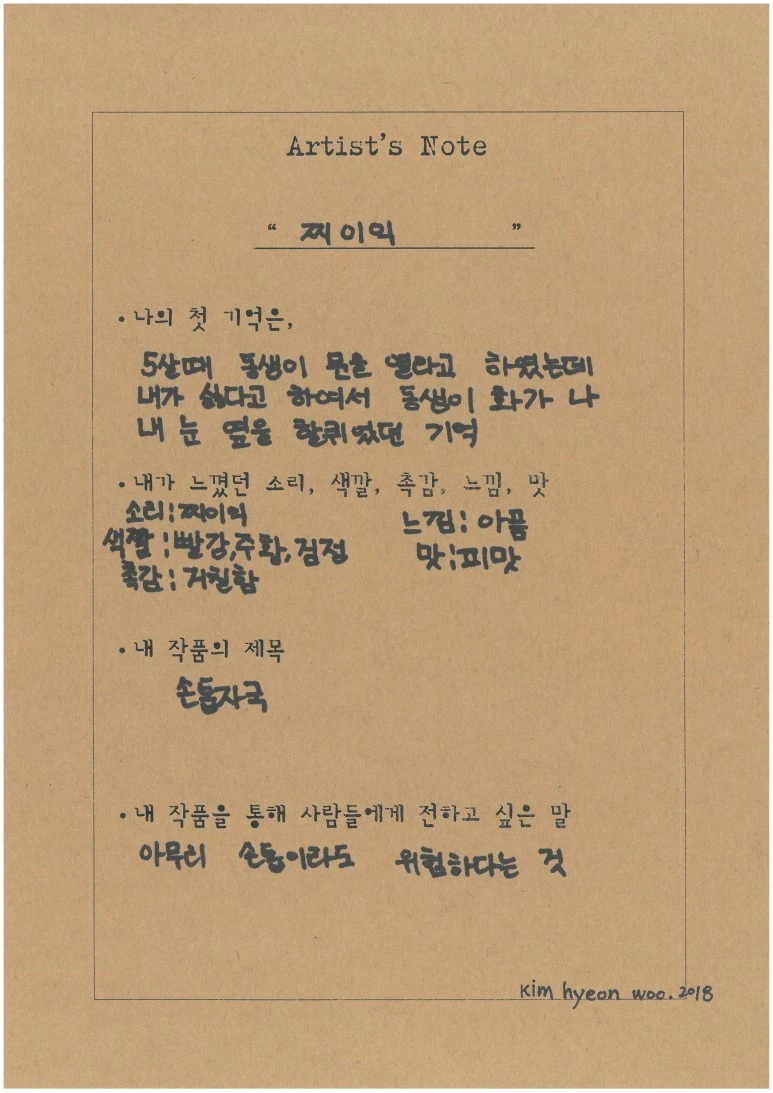 Artist's Note
“ 찌이익 ”
• 나의 첫 기억은,
5살때 동생이 문을 열라고 하였는데
내가 싫다고 하여서 동생이 화가 나
내 눈 옆을 할퀴었던 기억
• 내가 느꼈던 소리, 색깔, 촉감, 느낌, 맛
소리 : 찌이익
느낌 : 아픔
색깔 : 빨강, 주황, 검정
맛 : 피맛
촉감 : 거친함
• 내 작품의 제목
손톱자국
• 내 작품을 통해 사람들에게 전하고 싶은 말
아무리 손톱이라도 위험하다는 것
Kim hyeon woo. 2018